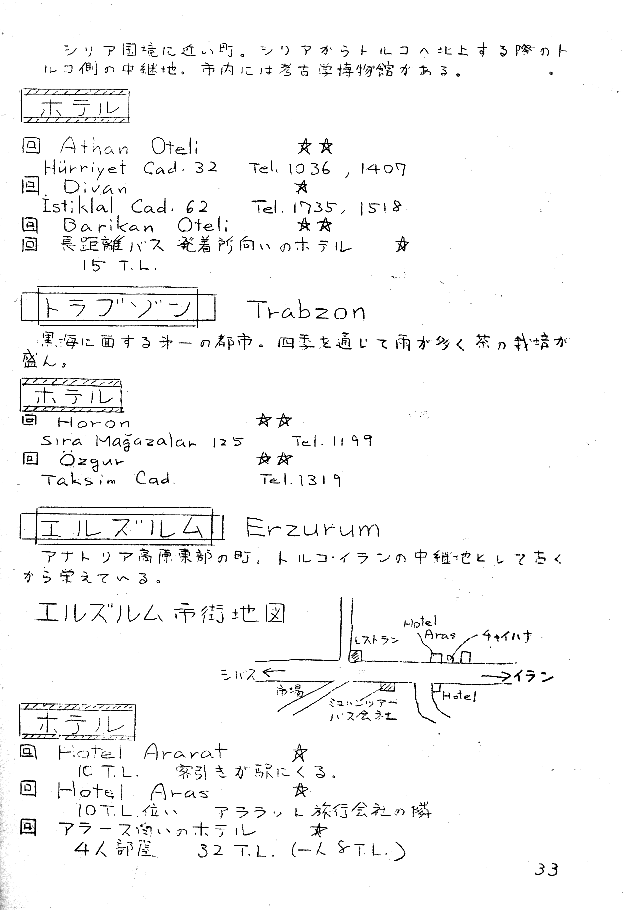 シリア国境に近い町。シリアからトルコへ北上する際のト
ルコ側の中継地。市内には考古学博物館がある。
ホテル
回 Athan Oteli ☆☆
Hürriyet Cad. 32 Tel. 1036, 1407
回 Divan ☆
İstiklal Cad. 62 Tel. 1735, 1518
回 Barikan Oteli ☆☆
回 長距離バス発着所向いのホテル ☆
15 T.L.
トラブゾン Trabzon
黒海に面する第一の都市。四季を通じて雨が多く茶の栽培が
盛ん。
ホテル
回 Horon ☆☆
Sira Mağazalar 125 Tel. 1199
回 Özgur ☆☆
Taksim Cad. Tel. 1319
エルズルム Erzurum
アナトリア高原東部の町。トルコ・イランの中継地として古く
から栄えている。
エルズルム市街地図
レストラン
Hotel
Aras
チャイハナ
シバス
イラン
市場
ツアー
バス会社
Hotel
ホテル
回 Hotel Ararat ☆
10 T.L. 客引きが駅にくる。
回 Hotel Aras ☆
10 T.L. 位い アララット旅行会社の隣
回 アラース向いのホテル ☆
4人部屋 32 T.L. (一人 8 T.L.)
33